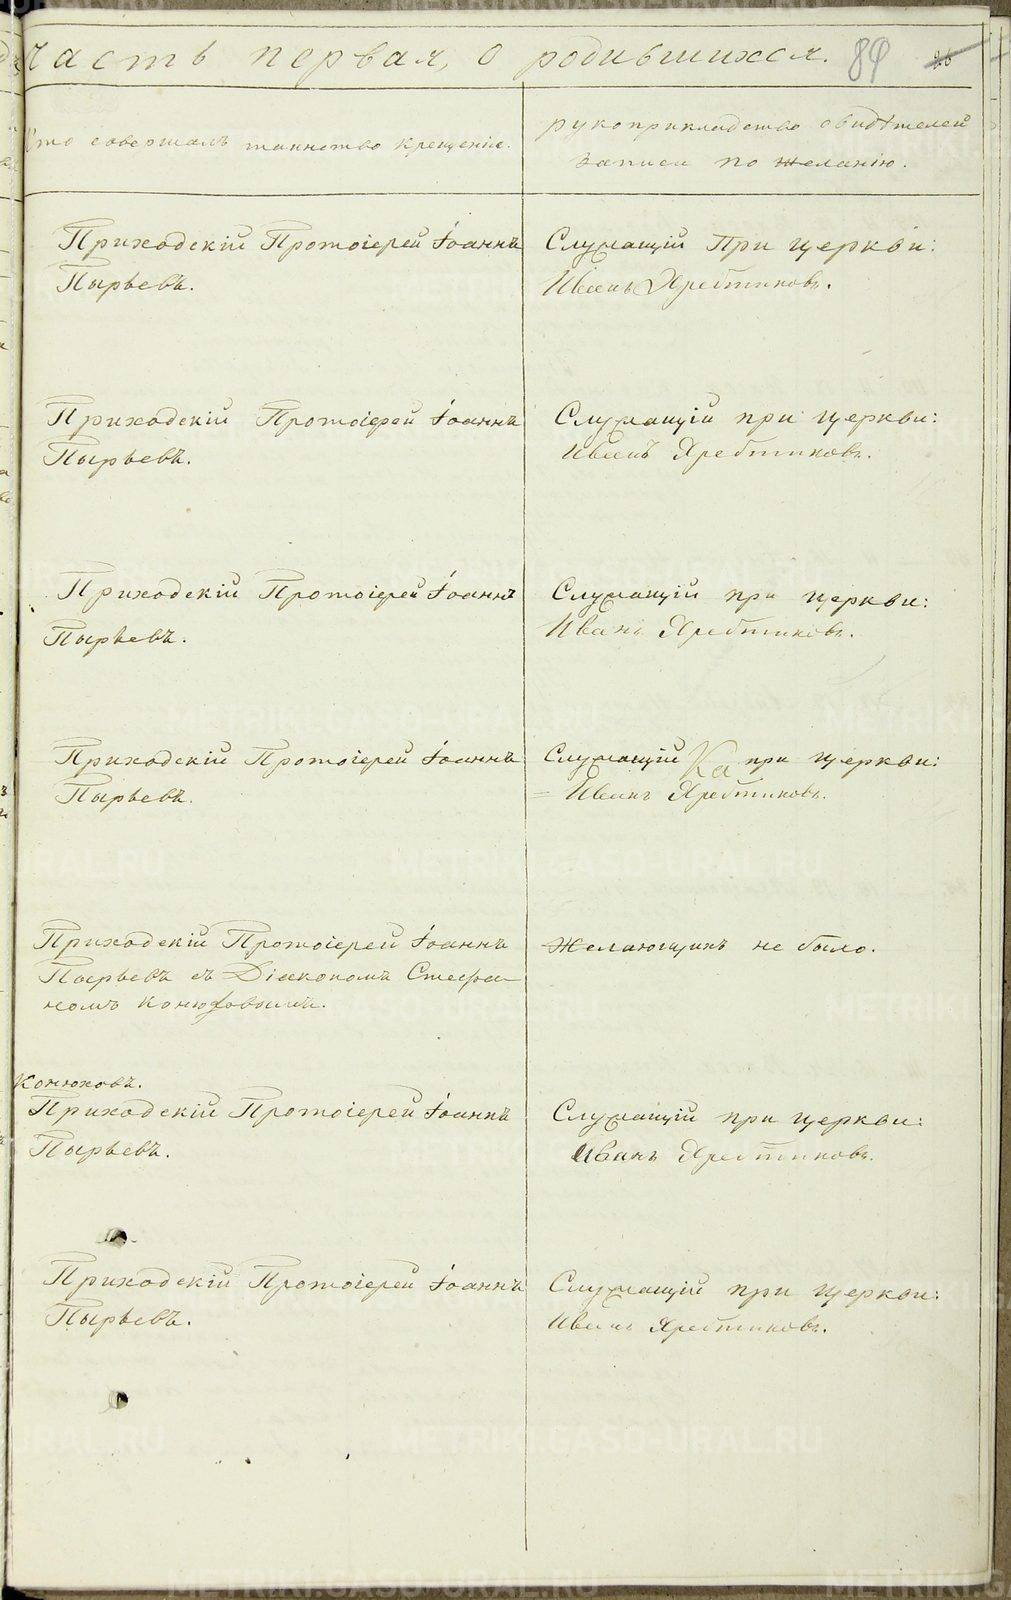 Часть первая, о родившихся. 89 26
Кто совершалъ таинство крещенія.
рукоприкладство свидѣтелей
записи по желанію.
Приходскій Протоіерей Іоаннъ
Пырьевъ.
Служащій При церкви:
Иванъ Яребтиковъ.
Приходскій Протоіерей Іоаннъ
Пырьевъ.
Служащій при церкви:
Иванъ Яребтиковъ.
Приходскій Протоіерей Іоаннъ
Пырьевъ.
Служащій при церкви:
Иванъ Яребтиковъ.
Приходскій Протоіерей Іоаннъ
Пырьевъ.
Служащій при церкви:
Иванъ Яребтиковъ.
Приходскій Протоіерей Іоаннъ
Пырьевъ съ Діакономъ Стефа-
номъ Конюховымъ.
Желающихъ не было.
Конюховъ.
Приходскій Протоіерей Іоаннъ
Пырьевъ.
Служащій при церкви:
Иванъ Яребтиковъ.
Приходскій Протоіерей Іоаннъ
Пырьевъ.
Служащій при церкви:
Иванъ Яребтиковъ.
METRIKI.GASO-URAL.RU